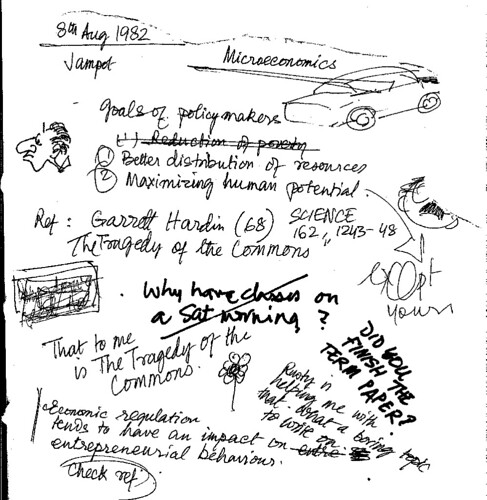 8th Aug 1982
Jampot
Microeconomics
goals of policymakers
(1) Reduction of poverty
① Better distribution of resources
② Maximizing human potential.
Ref : Garrett Hardin (68) SCIENCE
162, 1243-48
The Tragedy of the Commons
except
yours
. Why have classes on
a Sat morning ?
That to me
is The Tragedy of the
Commons.
DID YOU
FINISH THE
TERM PAPER?
Rusty is
helping me with
that. What a boring topic
to write on.
Economic regulation
tends to have an impact on entre
entrepreneurial behaviour.
Check ref.